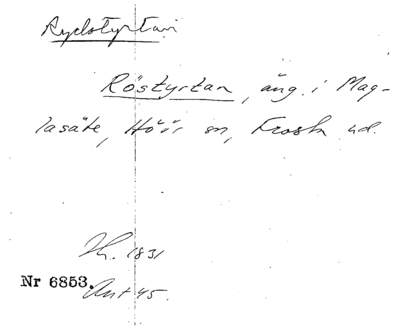 Rydstyrtan
Röstyrtan, äng i Mag-
lasäte, Höör sn, Frosta hd.
Th. 1831
Nr 6853. Ant 45.